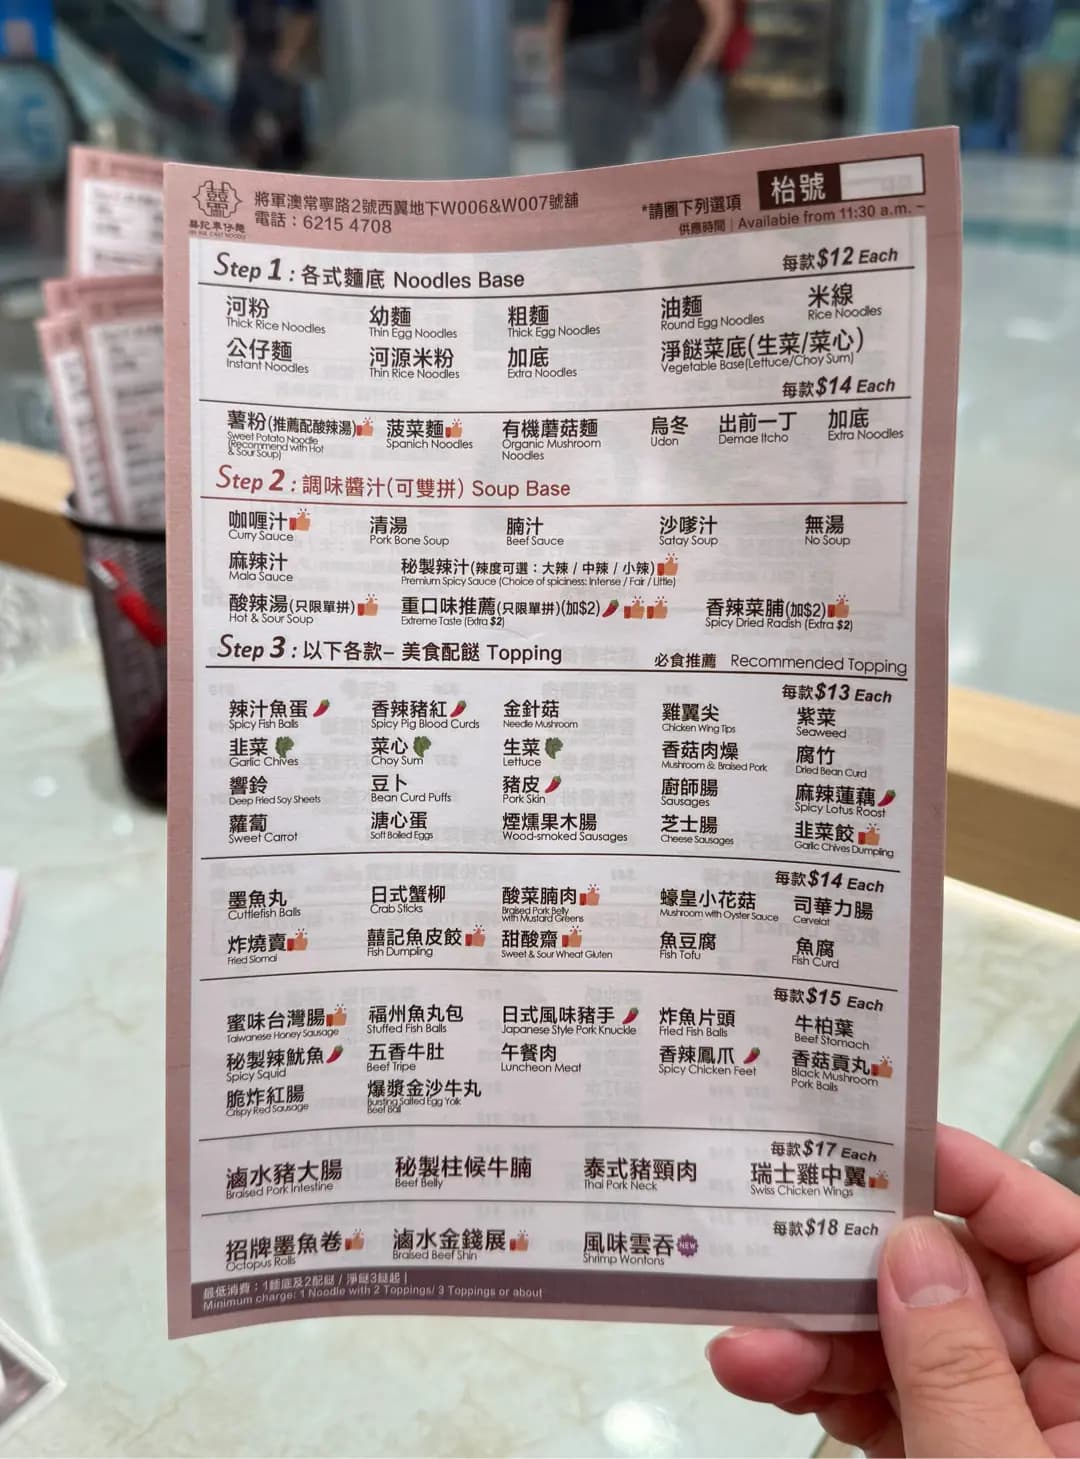 囍記車仔麵
將軍澳常寧路2號西翼地下W006&W007號舖
電話：6215 4708
*請圈下列選項
枱號
供應時間 | Available from 11:30 a.m. ~
Step 1 : 各式麵底 Noodles Base
每款$12 Each
河粉 幼麵 粗麵 油麵 米線
Thick Rice Noodles Thin Egg Noodles Thick Egg Noodles Round Egg Noodles Rice Noodles
公仔麵 河源米粉 加底 淨餸菜底(生菜/菜心)
Instant Noodles Thin Rice Noodles Extra Noodles Vegetable Base(Lettuce/Choy Sum)
每款$14 Each
薯粉(推薦配酸辣湯) 菠菜麵 有機蘑菇麵 烏冬 出前一丁 加底
Sweet Potato Noodle Spanich Noodles Organic Mushroom Udon Demae Itcho Extra Noodles
(Recommend with Hot Noodles
& Sour Soup)
Step 2 : 調味醬汁(可雙拼) Soup Base
咖喱汁 清湯 腩汁 沙嗲汁 無湯
Curry Sauce Pork Bone Soup Beef Sauce Satay Soup No Soup
麻辣汁 秘製辣汁(辣度可選：大辣 / 中辣 / 小辣)
Mala Sauce Premium Spicy Sauce (Choice of spiciness: Intense / Fair / Little)
酸辣湯(只限單拼) 重口味推薦(只限單拼)(加$2) 香辣菜脯(加$2)
Hot & Sour Soup Extreme Taste (Extra $2) Spicy Dried Radish (Extra $2)
Step 3 : 以下各款– 美食配餸 Topping
必食推薦 Recommended Topping
每款$13 Each
辣汁魚蛋 香辣豬紅 金針菇 雞翼尖 紫菜
Spicy Fish Balls Spicy Pig Blood Curds Needle Mushroom Chicken Wing Tips Seaweed
韭菜 菜心 生菜 香菇肉燥 腐竹
Garlic Chives Choy Sum Lettuce Mushroom & Braised Pork Dried Bean Curd
響鈴 豆卜 豬皮 廚師腸 麻辣蓮藕
Deep Fried Soy Sheets Bean Curd Puffs Pork Skin Sausages Spicy Lotus Roost
蘿蔔 溏心蛋 煙燻果木腸 芝士腸 韭菜餃
Sweet Carrot Soft Boiled Eggs Wood-smoked Sausages Cheese Sausages Garlic Chives Dumpling
每款$14 Each
墨魚丸 日式蟹柳 酸菜腩肉 蠔皇小花菇 司華力腸
Cuttlefish Balls Crab Sticks Braised Pork Belly with Mustard Greens Mushroom with Oyster Sauce Cervelat
炸燒賣 囍記魚皮餃 甜酸齋 魚豆腐 魚腐
Fried Siomai Fish Dumpling Sweet & Sour Wheat Gluten Fish Tofu Fish Curd
每款$15 Each
蜜味台灣腸 福州魚丸包 日式風味豬手 炸魚片頭 牛柏葉
Taiwanese Honey Sausage Stuffed Fish Balls Japanese Style Pork Knuckle Fried Fish Balls Beef Stomach
秘製辣魷魚 五香牛肚 午餐肉 香辣鳳爪 香菇貢丸
Spicy Squid Beef Tripe Luncheon Meat Spicy Chicken Feet Black Mushroom Pork Balls
脆炸紅腸 爆漿金沙牛丸
Crispy Red Sausage Bursting Salted Egg Yolk Beef Ball
每款$17 Each
滷水豬大腸 秘製柱候牛腩 泰式豬頸肉 瑞士雞中翼
Braised Pork Intestine Beef Belly Thai Pork Neck Swiss Chicken Wings
每款$18 Each
招牌墨魚卷 滷水金錢展 風味雲吞 NEW
Octopus Rolls Braised Beef Shin Shrimp Wontons
最低消費：1麵底及2配餸 / 淨餸3餸起 |
Minimum charge: 1 Noodle with 2 Toppings/ 3 Toppings or about